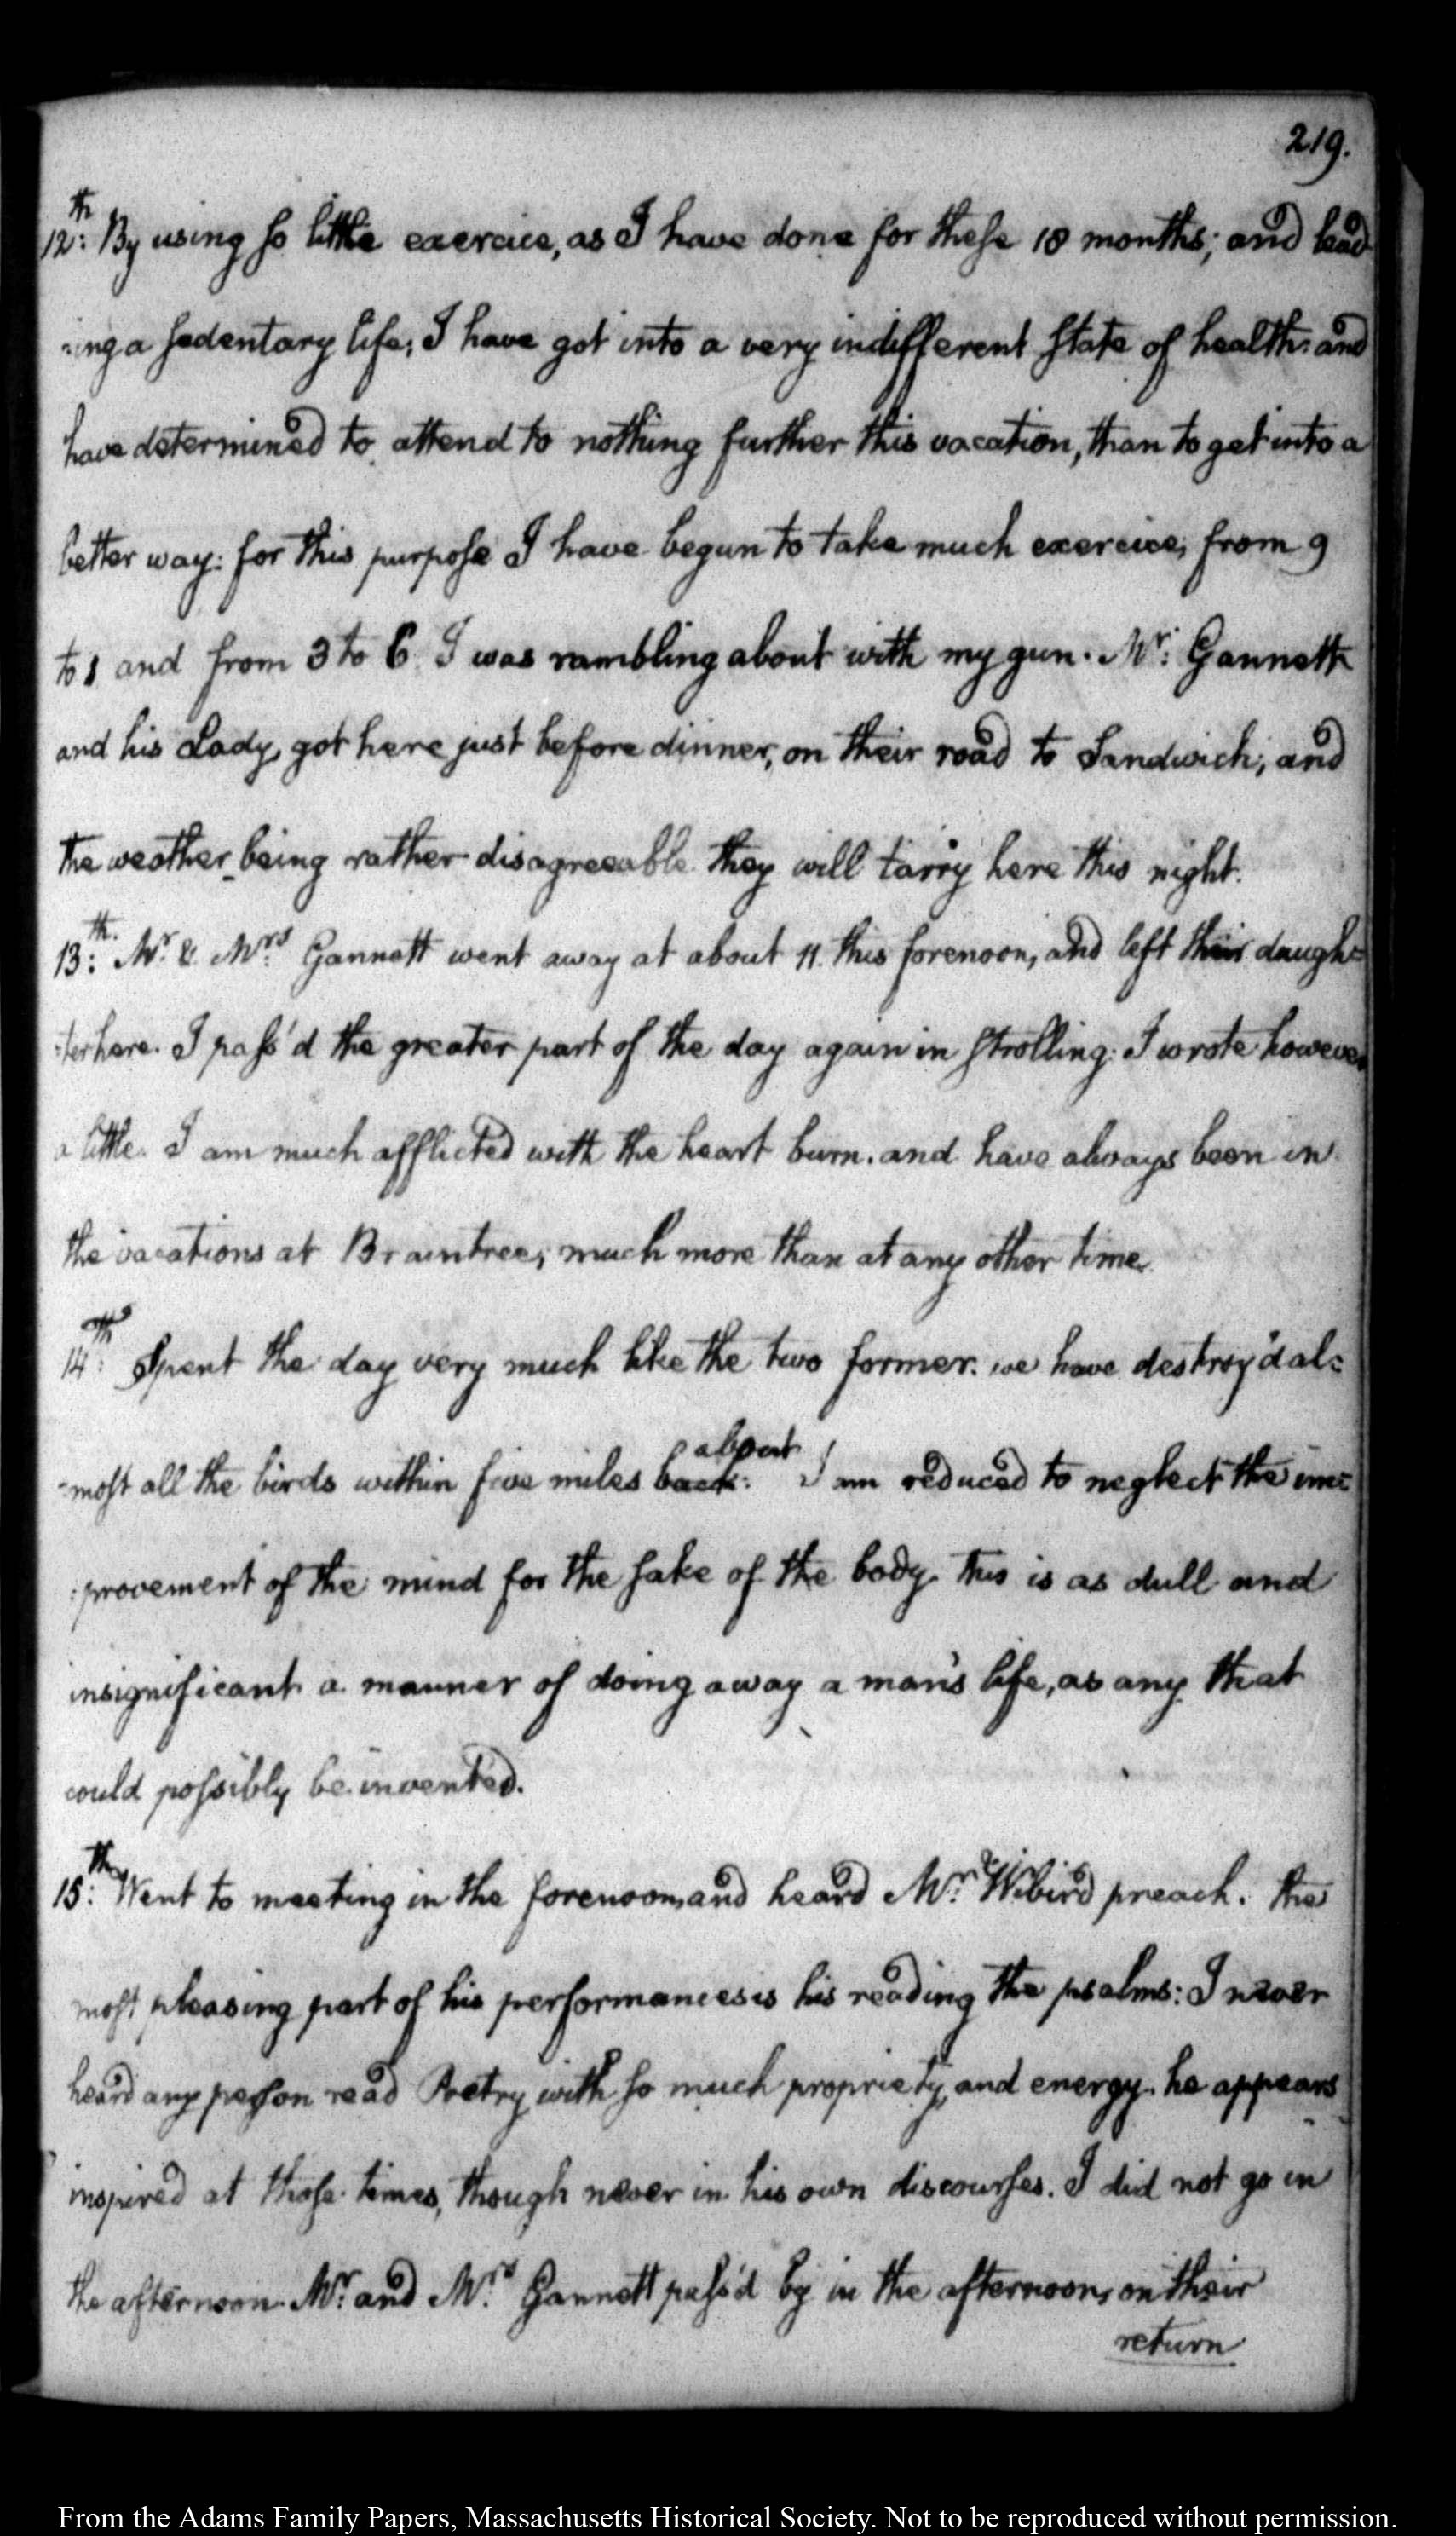 219.
12th: By using so little exercice, as I have done for these 18 months; and lead
ing a sedentary life; I have got into a very indifferent state of health: and
have determined to attend to nothing further this vacation, than to get into a
better way: for this purpose I have begun to take much exercice; from 9
to 1 and from 3 to 6. I was rambling about with my gun. Mr: Gannett
and his Lady, got here just before dinner, on their road to Sandwich; and
the weather being rather disagreeable they will tarry here this night.
13th: Mr. & Mrs: Gannett went away at about 11. this forenoon, and left their daugh=
-ter here. I pass'd the greater part of the day again in strolling: I wrote however
a little. I am much afflicted with the heart burn. and have always been in
the vacations at Braintree, much more than at any other time.
14th: Spent the day very much like the two former. we have destroy'd al=
-most all the birds within five miles back: about I am reduced to neglect the im=
:provement of the mind for the sake of the body. this is as dull and
insignificant a manner of doing away a man's life, as any that
could possibly be invented.
15th: Went to meeting in the forenoon, and heard Mr: Wibird preach. the
most pleasing part of his performances is his reading the psalms: I never
heard any person read Poetry with so much propriety, and energy. he appears
inspired at those times, though never in his own discourses. I did not go in
the afternoon. Mr. and Mrs. Gannett pass'd by in the afternoon, on their
return
From the Adams Family Papers, Massachusetts Historical Society. Not to be reproduced without permission.